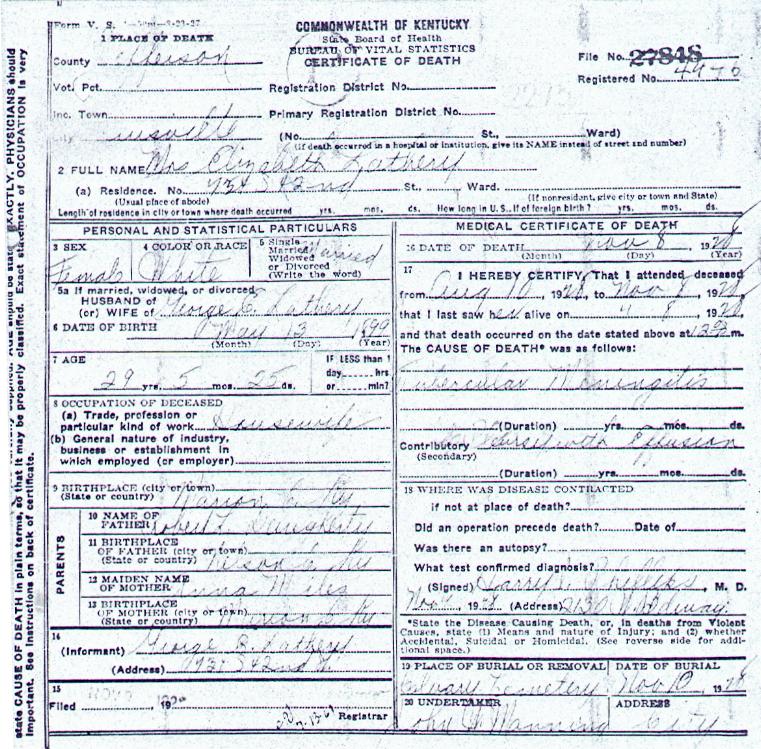 Form V. S.
COMMONWEALTH OF KENTUCKY
State Board of Health
BUREAU OF VITAL STATISTICS
CERTIFICATE OF DEATH
1 PLACE OF DEATH
County efferson
File No. 27848
Registered No. 4976
Vot. Pct. Registration District No.
2213
Inc. Town Primary Registration District No.
City uisville (No. St., Ward)
(If death occurred in a hospital or institution, give its NAME instead of street and number)
2 FULL NAME Mrs Elizabeth Lathery
(a) Residence. No. 731 S 42nd St., Ward.
(Usual place of abode) (If nonresident, give city or town and State)
Length of residence in city or town where death occurred yrs. mos. ds. How long in U.S., if of foreign birth? yrs. mos. ds.
PERSONAL AND STATISTICAL PARTICULARS
3 SEX Female
4 COLOR OR RACE White
5 Single Married Widowed or Divorced (Write the word) Married
5a If married, widowed, or divorced
HUSBAND of
(or) WIFE of George E. Lathery
6 DATE OF BIRTH May 13 1899
(Month) (Day) (Year)
7 AGE
29 yrs. 5 mos. 25 ds.
IF LESS than 1
day, hrs.
or min?
8 OCCUPATION OF DECEASED
(a) Trade, profession or
particular kind of work Housewife
(b) General nature of industry,
business or establishment in
which employed (or employer)
9 BIRTHPLACE (city or town)
(State or country) Marion Co Ky
PARENTS
10 NAME OF
FATHER Robert L Daugherty
11 BIRTHPLACE
OF FATHER (city or town)
(State or country) Nelson Co Ky
12 MAIDEN NAME
OF MOTHER Anna Miles
13 BIRTHPLACE
OF MOTHER (city or town)
(State or country) Marion Co Ky
14
(Informant) George B. Lathery
(Address) 731 S 42nd St
15
Filed NOV 192
Registrar
MEDICAL CERTIFICATE OF DEATH
16 DATE OF DEATH Nov 8, 1928
(Month) (Day) (Year)
17 I HEREBY CERTIFY, That I attended deceased
from Aug 10, 1928, to Nov 8, 1928,
that I last saw her alive on 8, 1928,
and that death occurred on the date stated above at m.
The CAUSE OF DEATH* was as follows:
Tubercular Meningitis
(Duration) yrs. mos. ds.
Contributory Pleurisy with Effusion
(Secondary)
(Duration) yrs. mos. ds.
18 WHERE WAS DISEASE CONTRACTED
if not at place of death?
Did an operation precede death? Date of
Was there an autopsy?
What test confirmed diagnosis?
(Signed) Harry Phillips, M. D.
Nov 1928 (Address) Broadway
*State the Disease Causing Death, or, in deaths from Violent
Causes, state (1) Means and nature of Injury; and (2) whether
Accidental, Suicidal or Homicidal. (See reverse side for addi-
tional space.)
19 PLACE OF BURIAL OR REMOVAL DATE OF BURIAL
Calvary Cemetery Nov 10, 1928
20 UNDERTAKER ADDRESS
John Manning City
EXACTLY. PHYSICIANS should
state CAUSE OF DEATH in plain terms, so that it may be properly classified. Exact statement of OCCUPATION is very
important. See instructions on back of certificate.